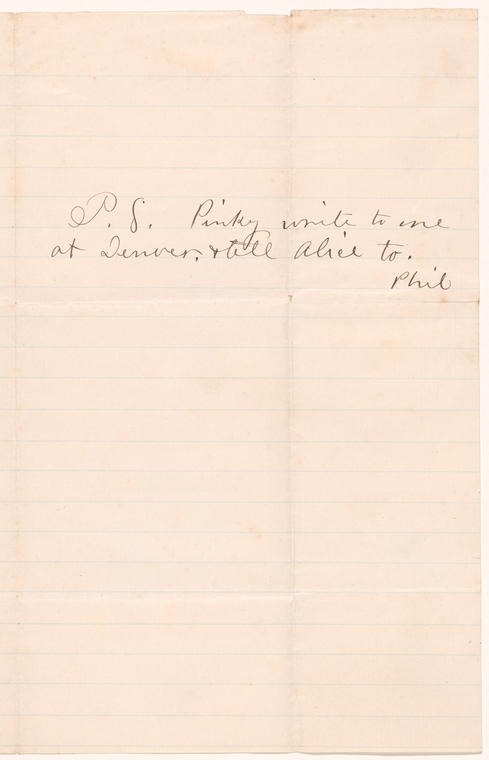 P. S. Pinky write to me
at Denver, & tell Alice to.
Phil